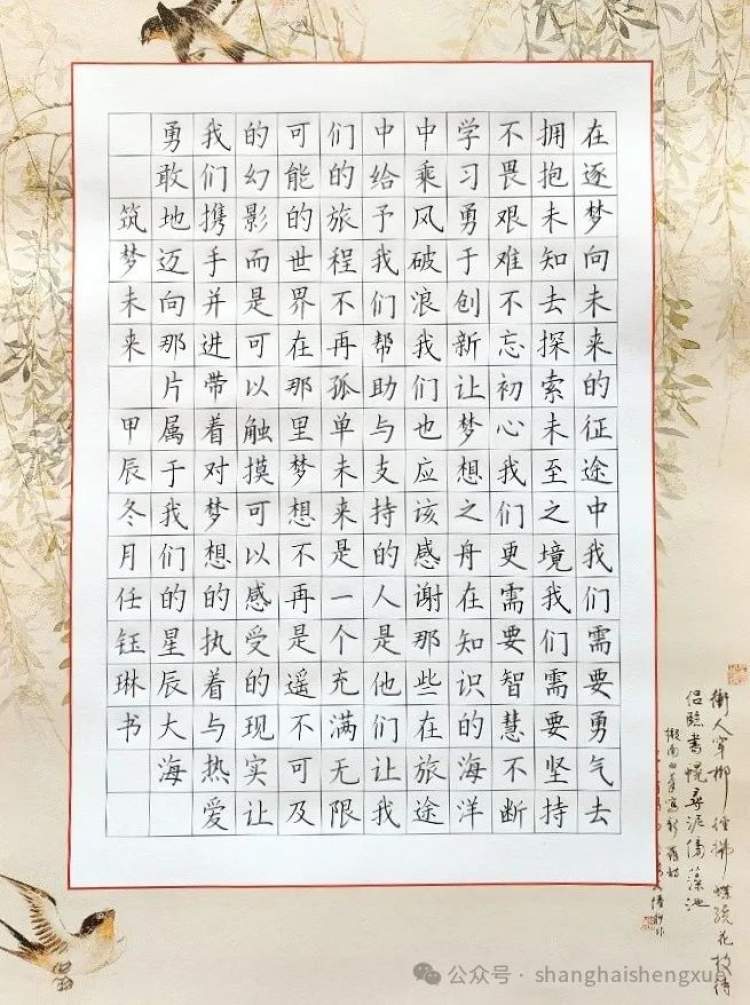 在逐梦向未来的征途中我们需要勇气去
拥抱未知去探索未至之境我们需要坚持
不畏艰难不忘初心我们更需要智慧不断
学习勇于创新让梦想之舟在知识的海洋
中乘风破浪我们也应该感谢那些在旅途
中给予我们帮助与支持的人是他们让我
们的旅程不再孤单未来是一个充满无限
可能的世界在那里梦想不再是遥不可及
的幻影而是可以触摸可以感受的现实让
我们携手并进带着对梦想的执着与热爱
勇敢地迈向那片属于我们的星辰大海
筑梦未来 甲辰冬月任钰琳书
衝人穿柳徑拂蝶繞花枝待
侣臨書幌尋泥傍藻池
公众号 · shanghaishengxue